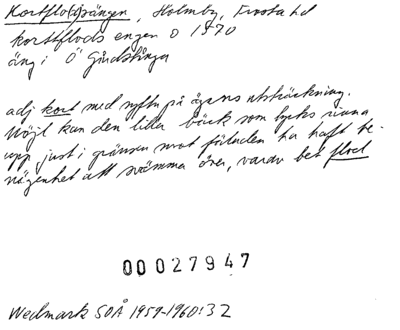 Kortflo(d)sängen, Holmby, Frosta hd
kortflods engen O 1570
äng i Ö Gårdstånga
adj kort med syftn på ägans utsträckning.
Möjl kan den lilla bäck som tycks rinna
upp just i gränsen mot fäladen ha haft be-
nägenhet att svämma över, varav bet flod
00027947
Wedmark SOÅ 1959-1960:32